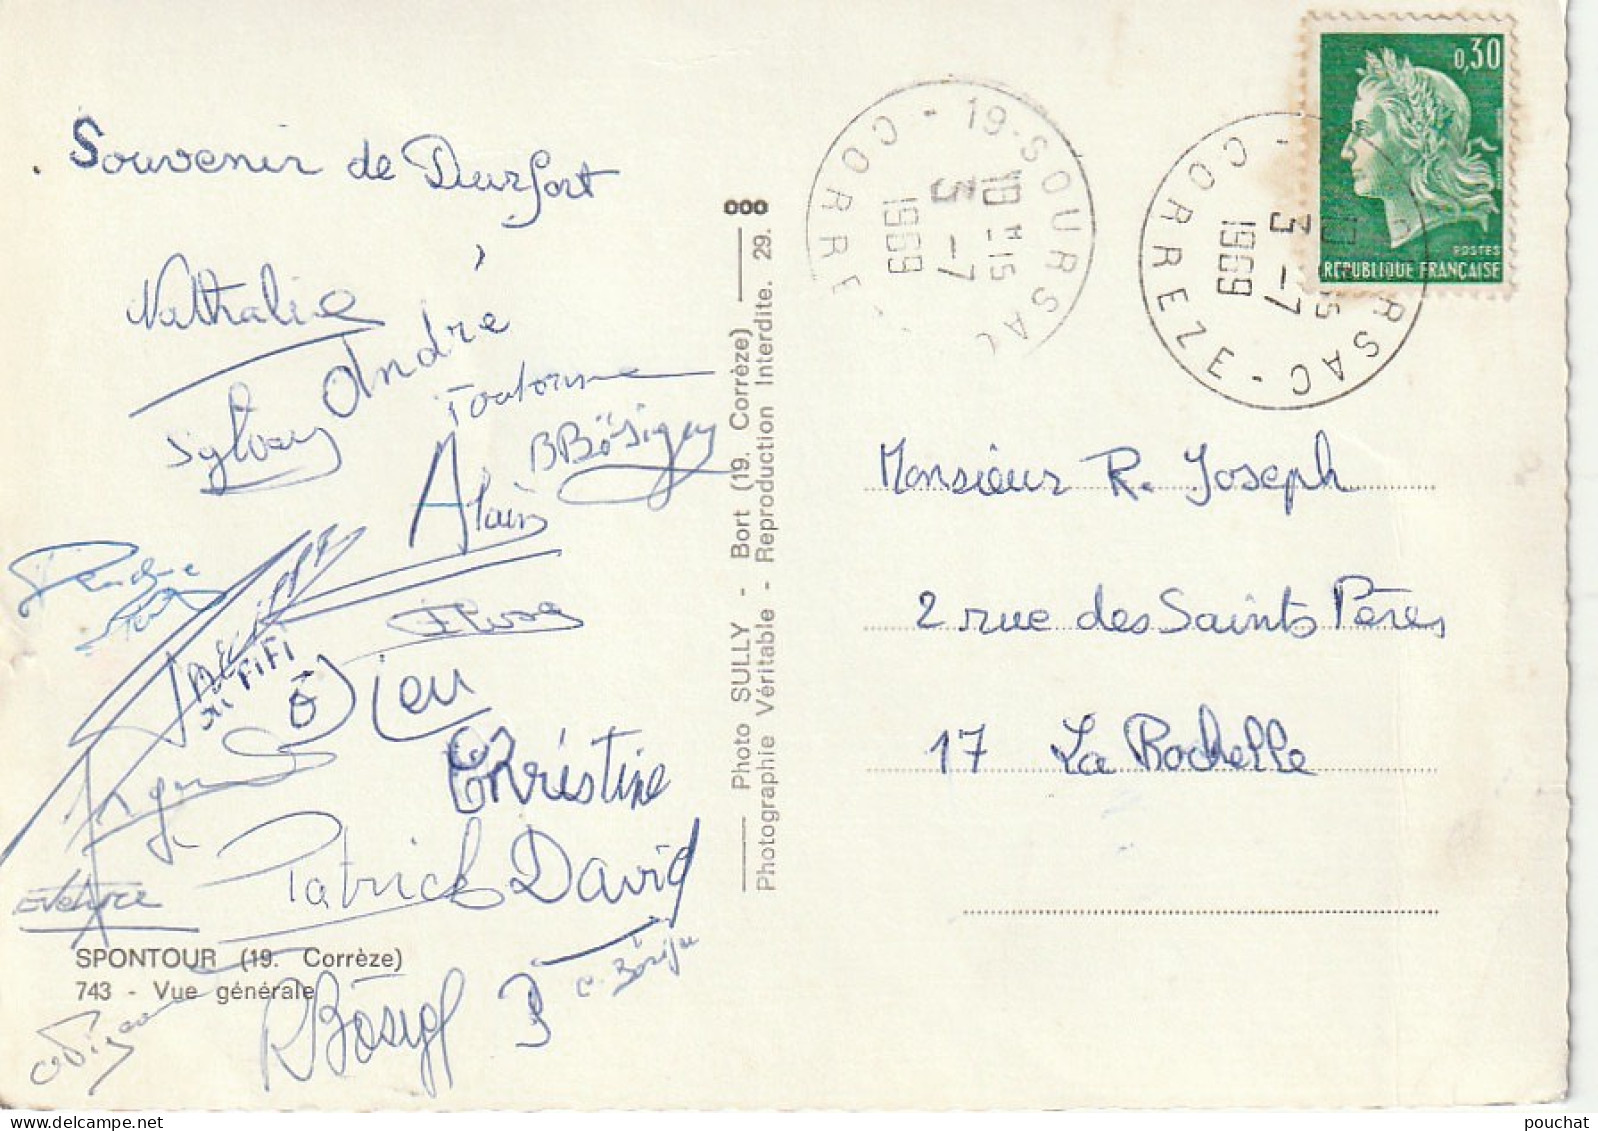 Souvenir de Durfort
Nathalie
André
Sylvain
Toutoune
BBösigey
Alain
FIFI
ô Dieu
Christine
Patrick
David
Evelyne
SPONTOUR (19. Corrèze)
743 - Vue générale
R Bösig
Photo SULLY - Bort (19. Corrèze)
Photographie Véritable - Reproduction Interdite. 29.
19 - SOURSAC
CORRE
18 H-15
3 -7
1969
SOURSAC - CORREZE
3 -7
1969
0,30
POSTES
REPUBLIQUE FRANÇAISE
Monsieur R. Joseph
2 rue des Saints Pères
17 La Rochelle
pouchat